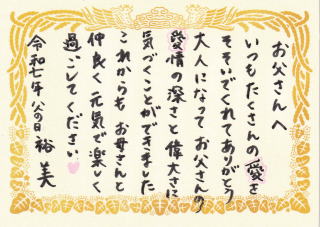 お父さんへ
いつもたくさんの愛を
そそいでくれてありがとう
大人になってお父さんの
愛情の深さと偉大さに
気づくことができました
これからもお母さんと
仲良く元気で楽しく
過ごしてください
令和七年 父の日 裕美